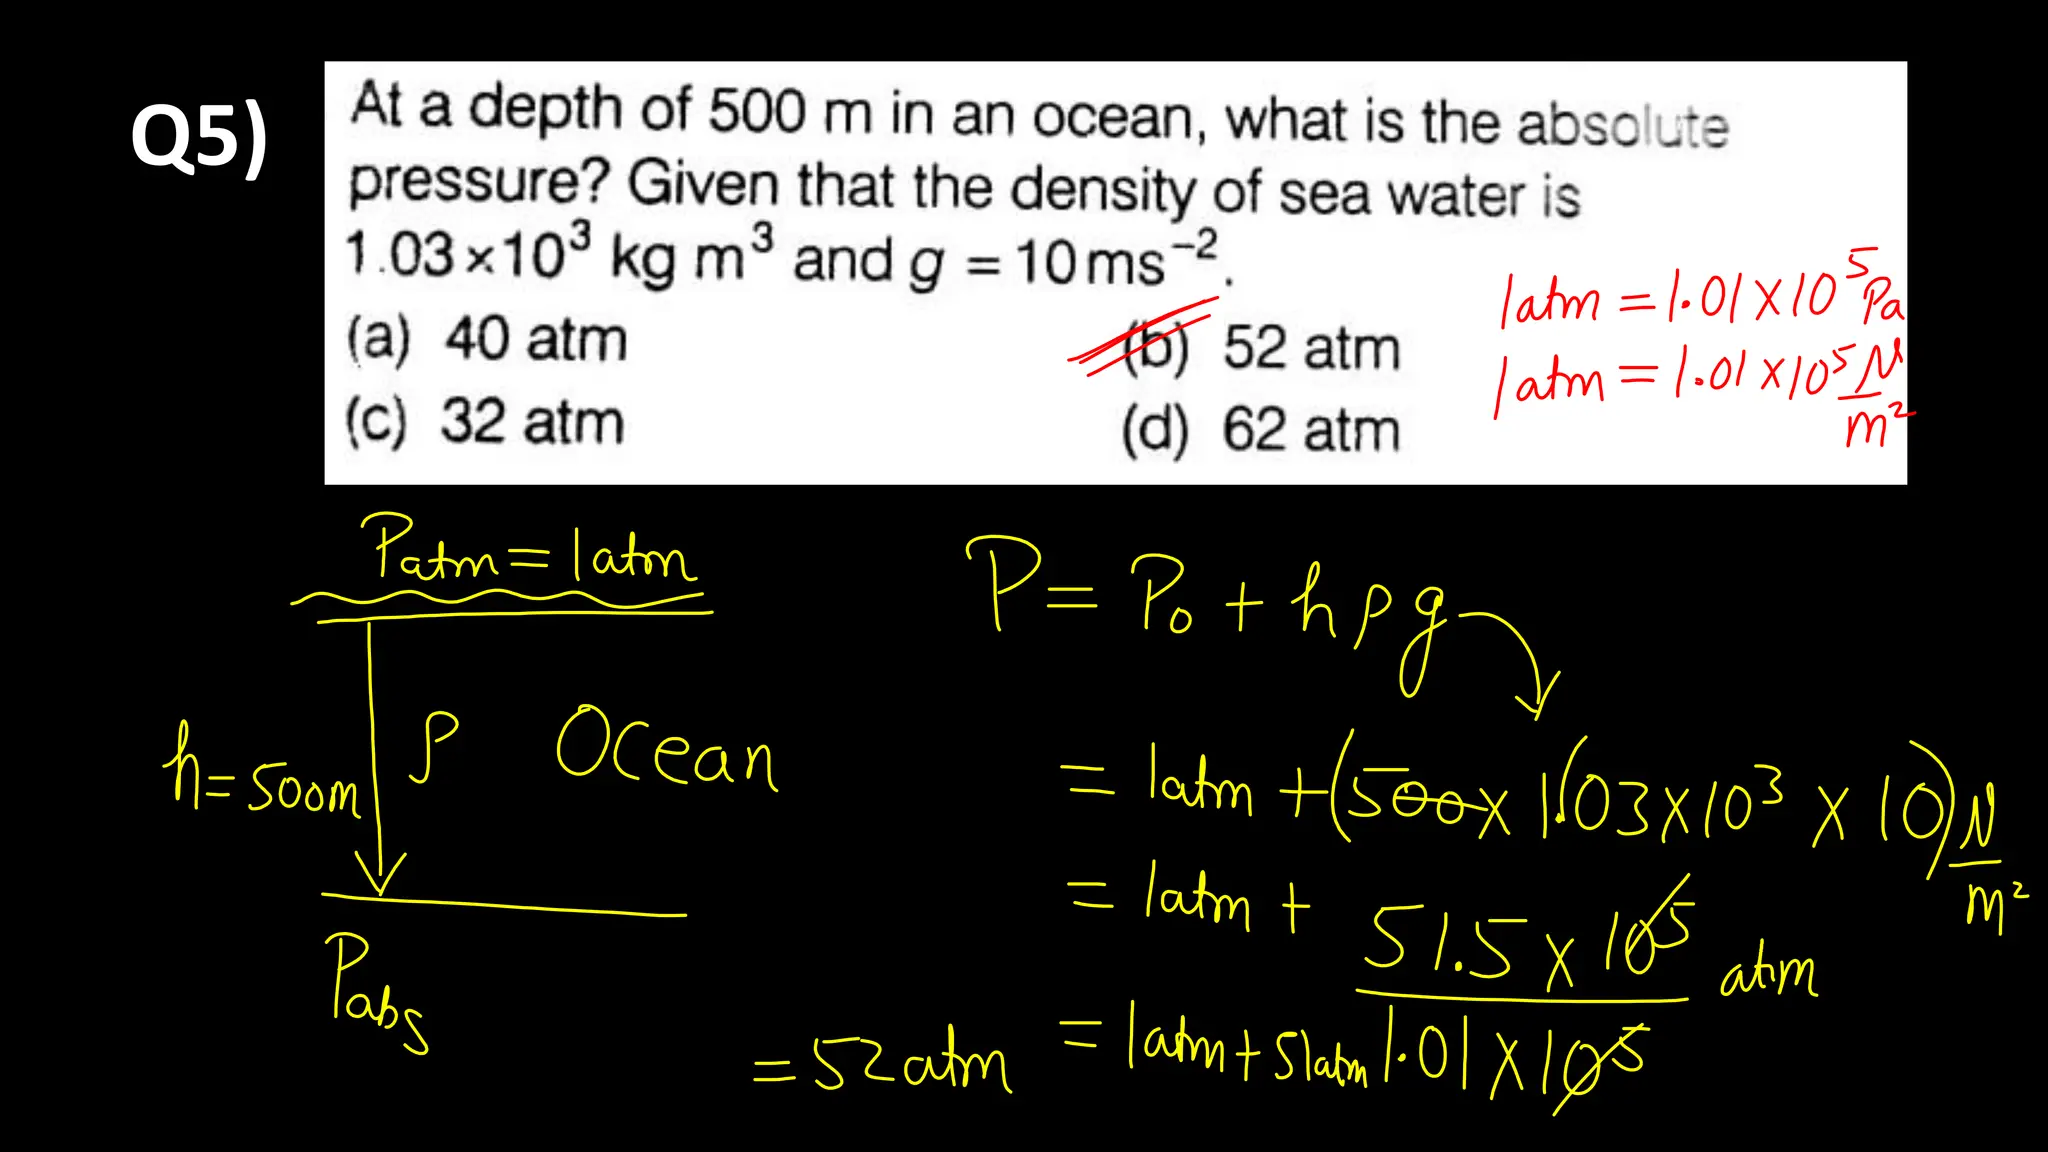 Q5)
At a depth of 500 m in an ocean, what is the absolute
pressure? Given that the density of sea water is
1.03×10³ kg m³ and g = 10 ms⁻².
(a) 40 atm
(b) 52 atm
(c) 32 atm
(d) 62 atm
1atm = 1.01×10⁵ Pa
1atm = 1.01×10⁵ N/m²
Patm = 1atm
h = 500m
ρ Ocean
Pabs
P = P₀ + hρg
= 1atm + (500 × 1.03×10³ × 10) N/m²
= 1atm + 51.5×10⁵ / 1.01×10⁵ atm
= 1atm + 51atm
= 52 atm